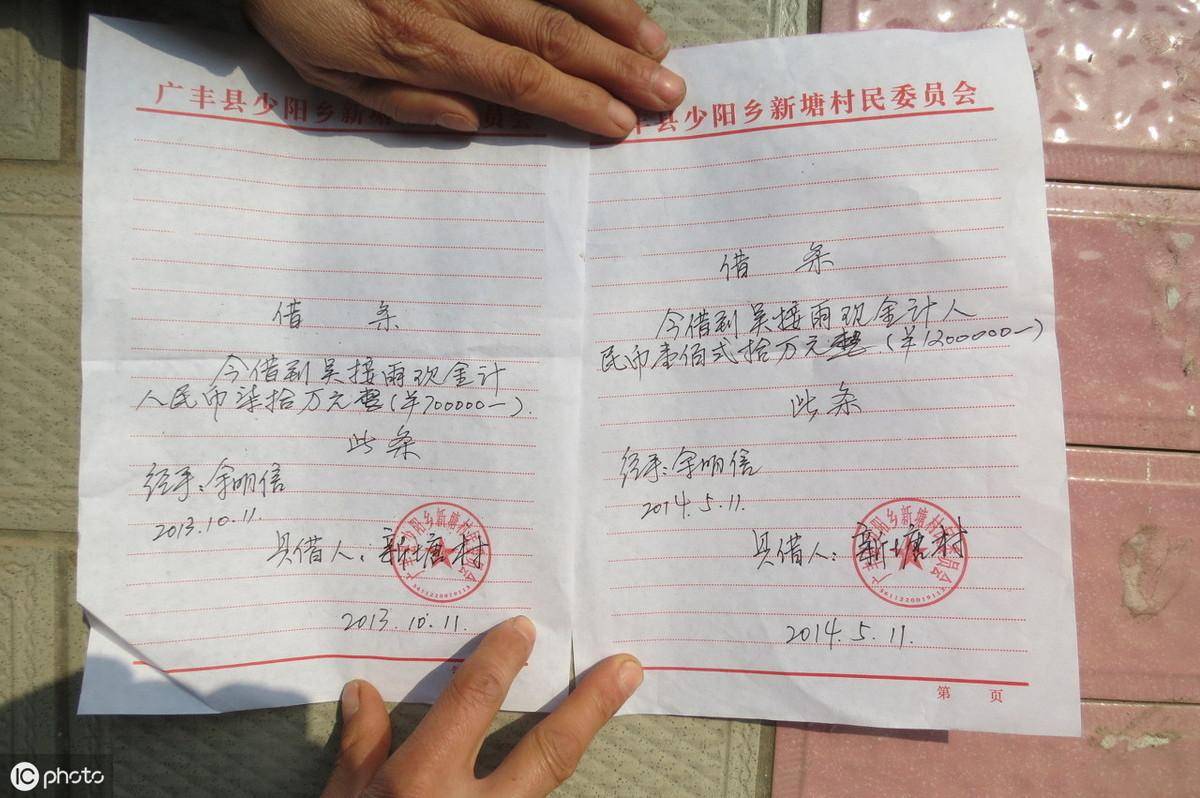 广丰县少阳乡新塘村民委员会
借 条
今借到吴接雨现金计
人民币柒拾万元整(¥700000—).
此条
经手:余明信
2013.10.11.
具借人:新塘村
2013.10.11.
丰县少阳乡新塘村民委员会
借 条
今借到吴接雨现金计人
民币壹佰式拾万元整.(¥1200000—)
此条
经手:余明信
2014.5.11
具借人:新塘村
2014.5.11.
第 页
IC photo